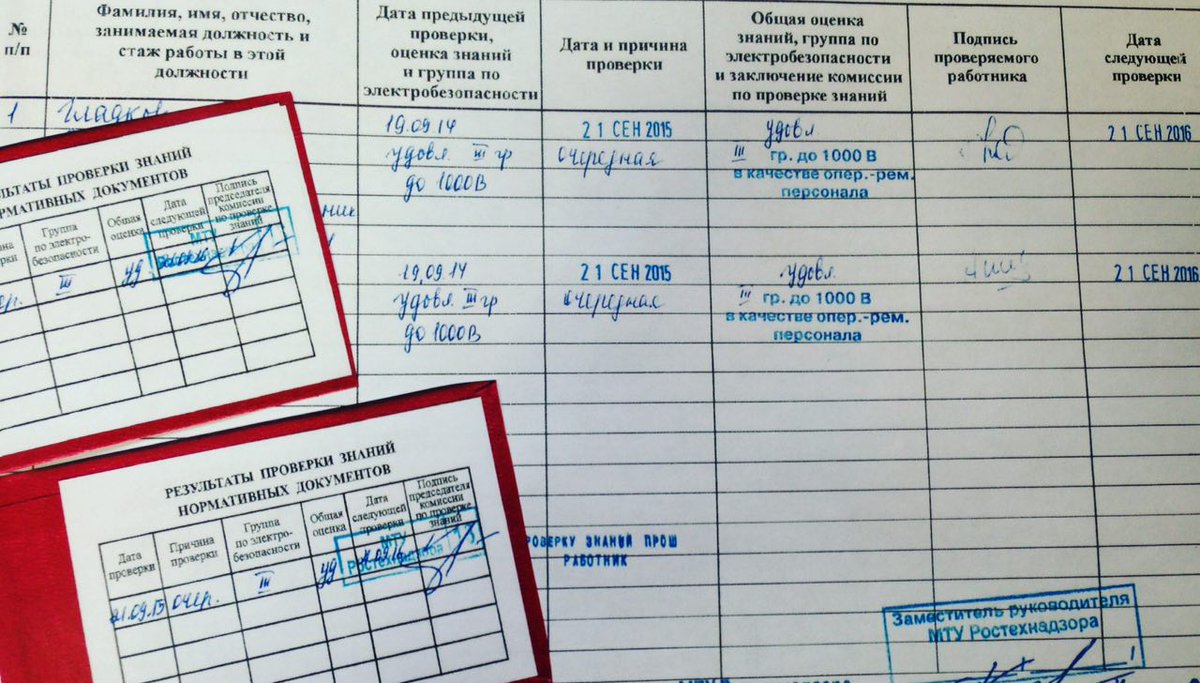 №
п/п
Фамилия, имя, отчество,
занимаемая должность и
стаж работы в этой
должности
Дата предыдущей
проверки,
оценка знаний
и группа по
электробезопасности
Дата и причина
проверки
Общая оценка
знаний, группа по
электробезопасности
и заключение комиссии
по проверке знаний
Подпись
проверяемого
работника
Дата
следующей
проверки
1
19.09.14
удовл. III гр
до 1000В
21 СЕН 2015
очередная
удовл.
III гр. до 1000 В
в качестве опер.-рем.
персонала
21 СЕН 2016
19.09.14
удовл. III гр
до 1000В
21 СЕН 2015
очередная
удовл.
III гр. до 1000 В
в качестве опер.-рем.
персонала
21 СЕН 2016
ЗУЛЬТАТЫ ПРОВЕРКИ ЗНАНИЙ
НОРМАТИВНЫХ ДОКУМЕНТОВ
Группа
по электро-
безопасности
Общая
оценка
Дата
следующей
проверки
Подпись
председателя
комиссии
по проверке
знаний
III
уд
МТУ
РЕЗУЛЬТАТЫ ПРОВЕРКИ ЗНАНИЙ
НОРМАТИВНЫХ ДОКУМЕНТОВ
Дата
проверки
Причина
проверки
Группа
по электро-
безопасности
Общая
оценка
Дата
следующей
проверки
Подпись
председателя
комиссии
по проверке
знаний
очер.
III
уд
МТУ
Ростехнадзора
РОВЕРКУ ЗНАНИЙ ПРОШ
РАБОТНИК
Заместитель руководителя
МТУ Ростехнадзора